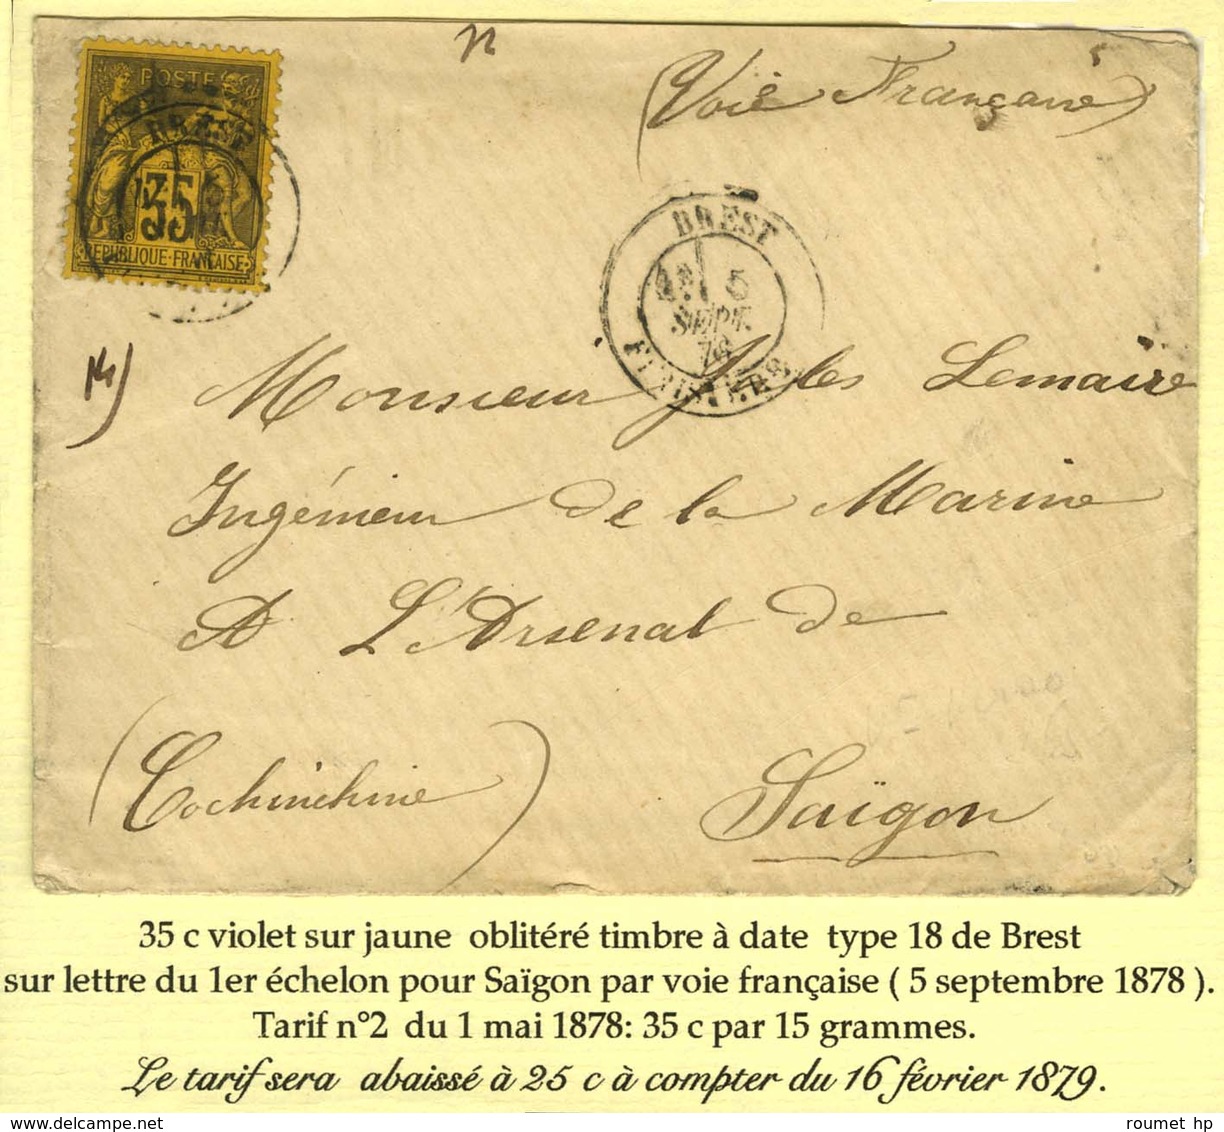 (Voie Française)
POSTE
35
REPUBLIQUE·FRANÇAISE
BREST
BREST
5
SEPT.
78
FINISTÈRE
Monsieur Jules Lemaire
Ingénieur de la Marine
A L'Arsenal de
(Cochinchine) Saïgon
35 c violet sur jaune oblitéré timbre à date type 18 de Brest
sur lettre du 1er échelon pour Saïgon par voie française ( 5 septembre 1878 ).
Tarif n°2 du 1 mai 1878: 35 c par 15 grammes.
Le tarif sera abaissé à 25 c à compter du 16 février 1879.
roumet hp